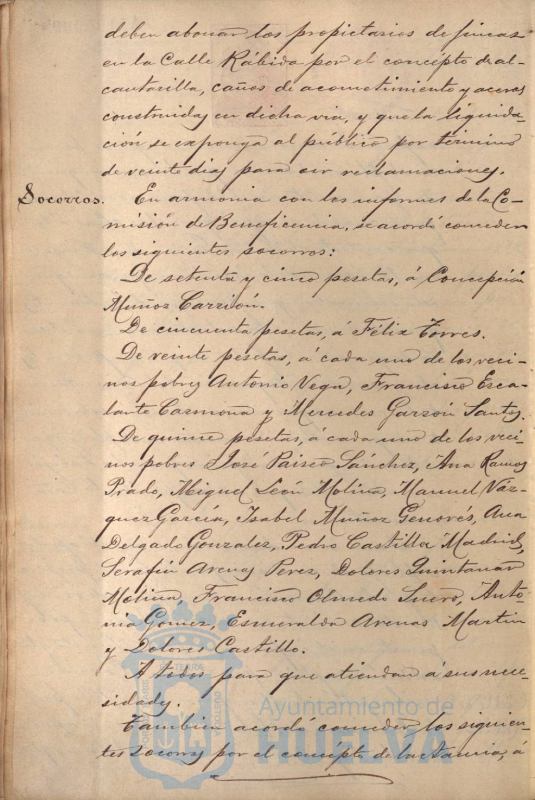 deben abonar los propietarios de fincas
en la Calle Rábida por el concepto de al-
cantarilla, caños de acometimiento y aceras
construidas en dicha via, y que la liquida-
ción se exponga al público por término
de veinte dias para oir reclamaciones.
Socorros.
En armonia con los informes de la Co-
misión de Beneficencia, se acordó conceder
los siguientes socorros:
De setenta y cinco pesetas, á Concepción
Muñoz Carrión.
De cincuenta pesetas, á Félix Torres.
De veinte pesetas, á cada uno de los veci-
nos pobres Antonio Vega, Francisco Esca-
lante Carmona y Mercedes Garzón Santos.
De quince pesetas, á cada uno de los veci-
nos pobres José Sánchez, Ana Ramos
Prado, Miguel León Molina, Manuel Váz-
quez García, Isabel Muñoz Genovés, Ana
Delgado Gonzalez, Pedro Castilla Madrid,
Serafin Arenas Perez, Dolores Quintanar
Molina, Francisco Olmedo Suero, Anto-
nia Gomez, Esmeralda Arenas Martin
y Dolores Castillo.
A todos para que atiendan á sus nece-
sidades.
Tambien acordó conceder los siguien-
tes socorros por el concepto de lactancia, á
Ayuntamiento de
HUELVA